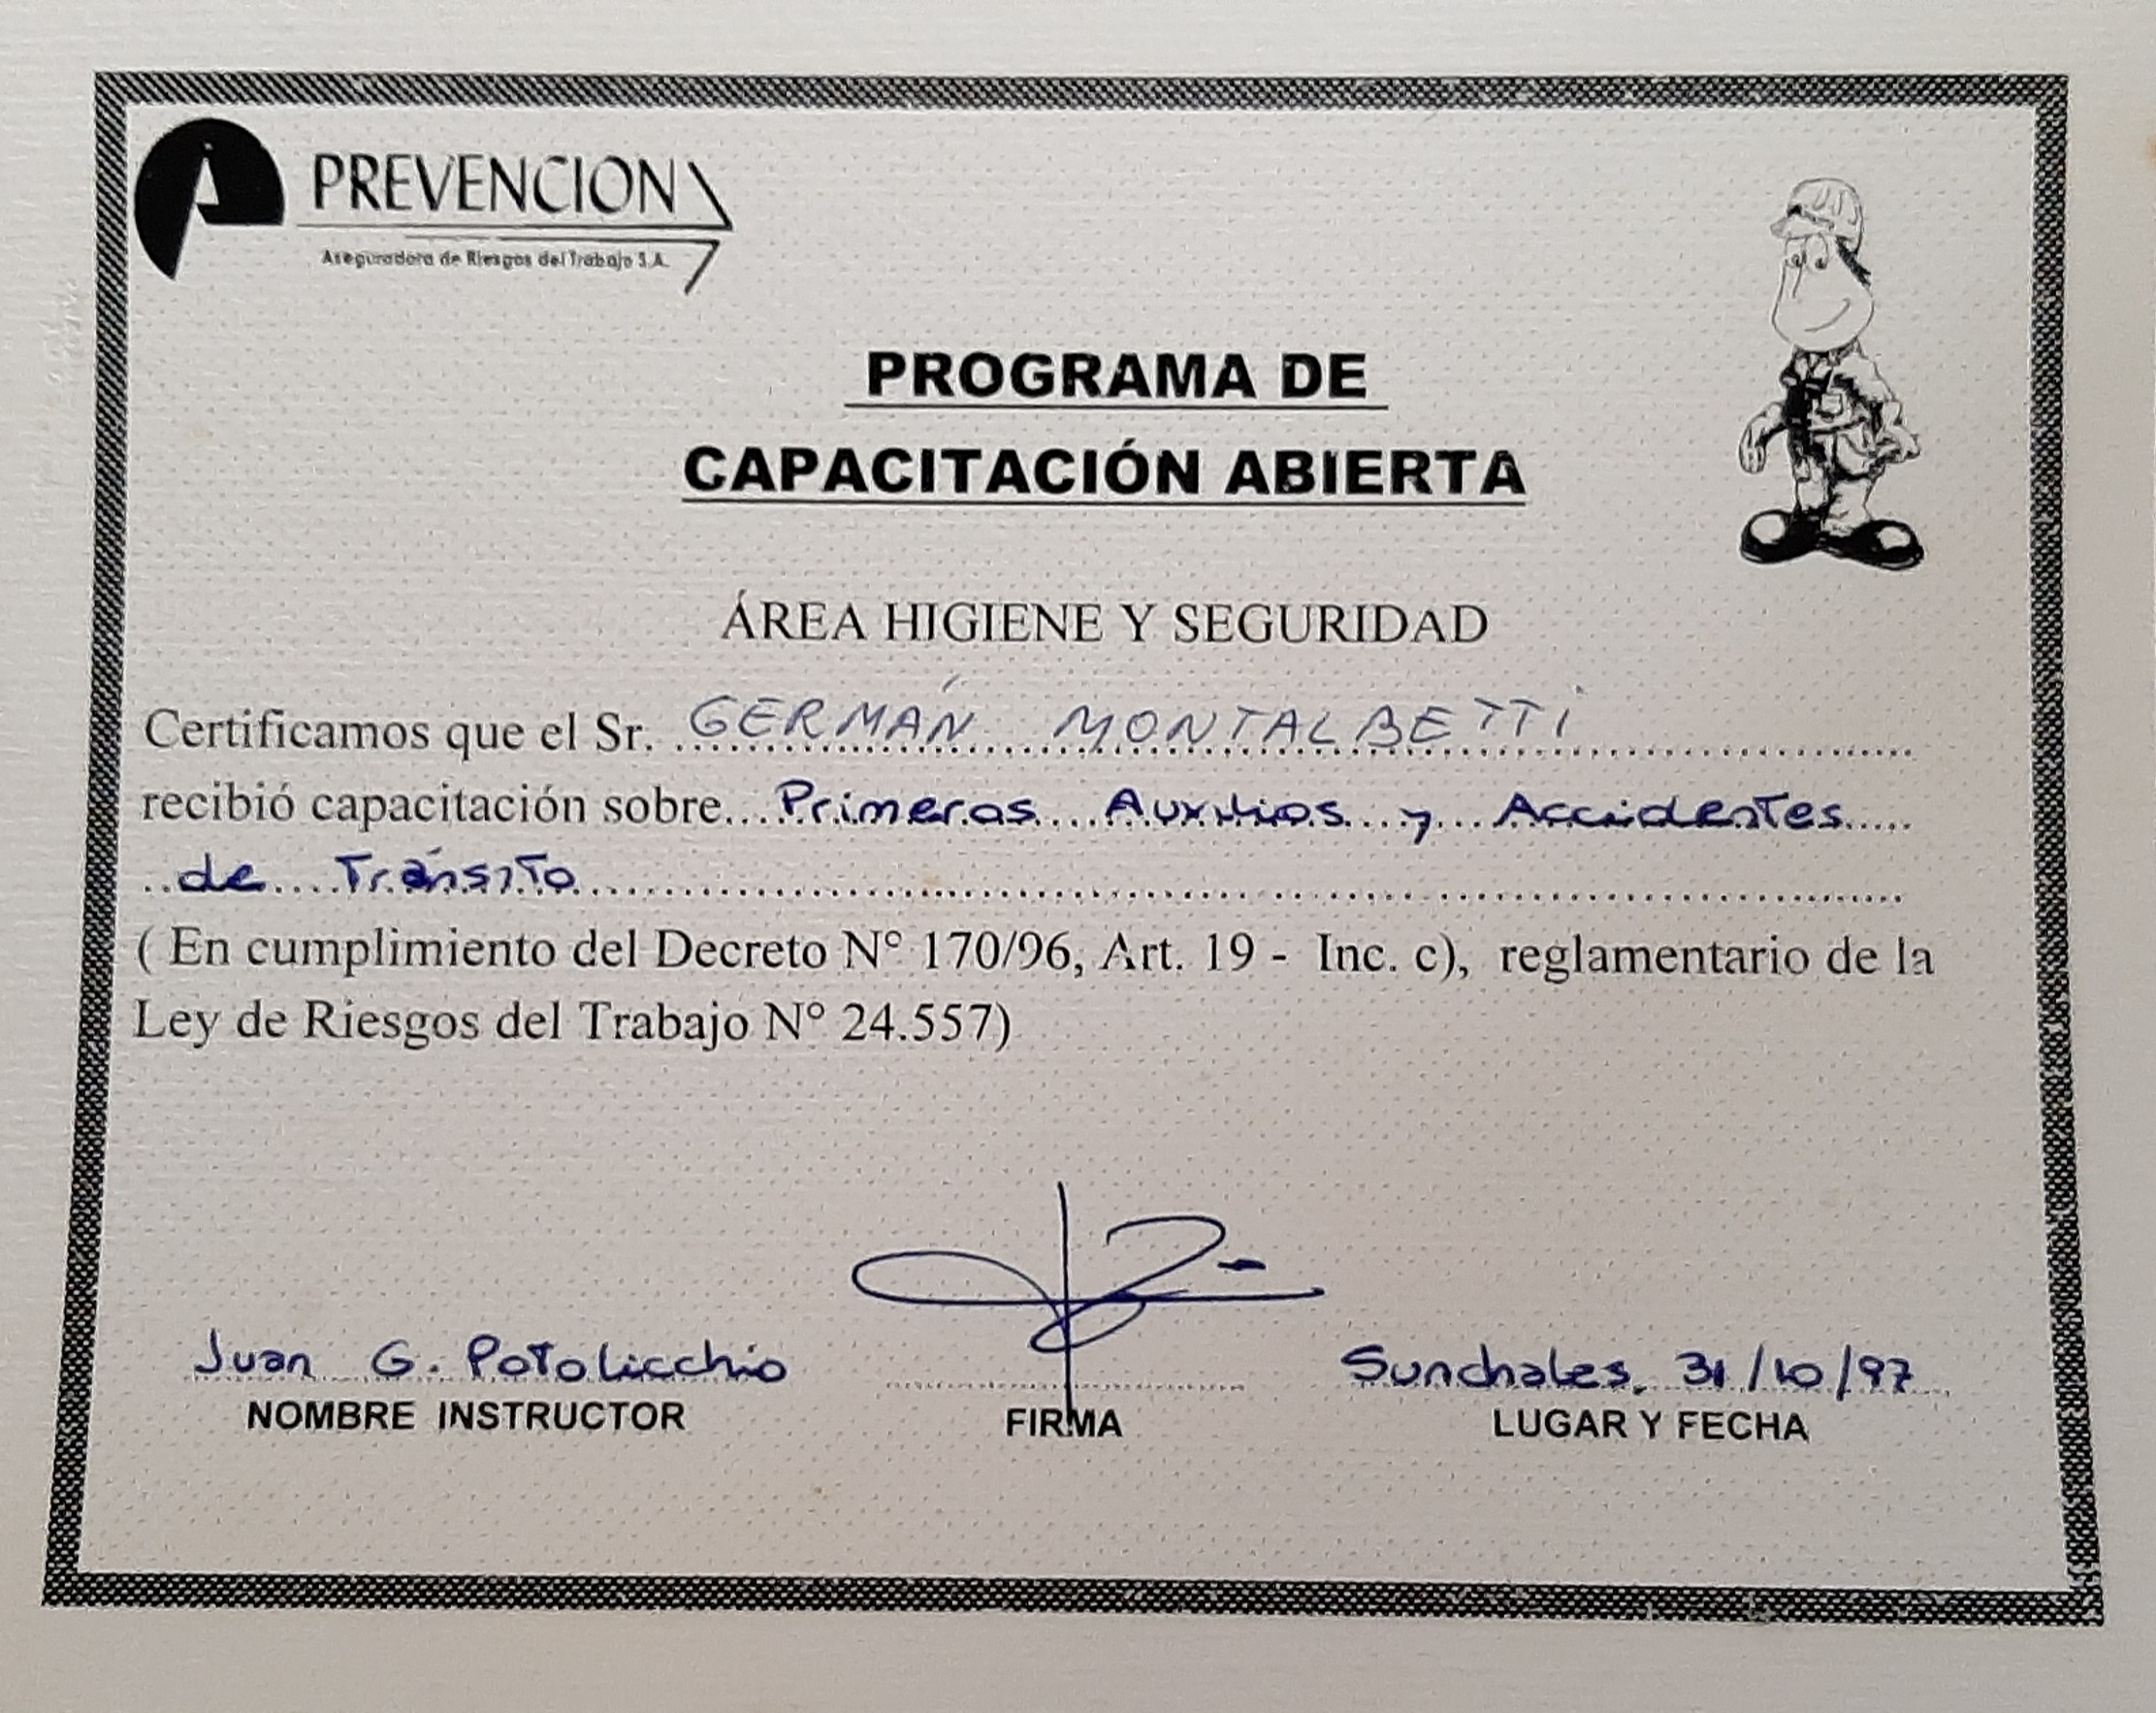 PREVENCION
Aseguradora de Riesgos del Trabajo S.A.
PROGRAMA DE
CAPACITACIÓN ABIERTA
ÁREA HIGIENE Y SEGURIDAD
Certificamos que el Sr. GERMÁN MONTALBETTI
recibió capacitación sobre Primeros Auxilios y Accidentes
de Tránsito
( En cumplimiento del Decreto N° 170/96, Art. 19 - Inc. c), reglamentario de la
Ley de Riesgos del Trabajo N° 24.557)
Juan G. Potolicchio
NOMBRE INSTRUCTOR
FIRMA
Sunchales, 31/10/97
LUGAR Y FECHA